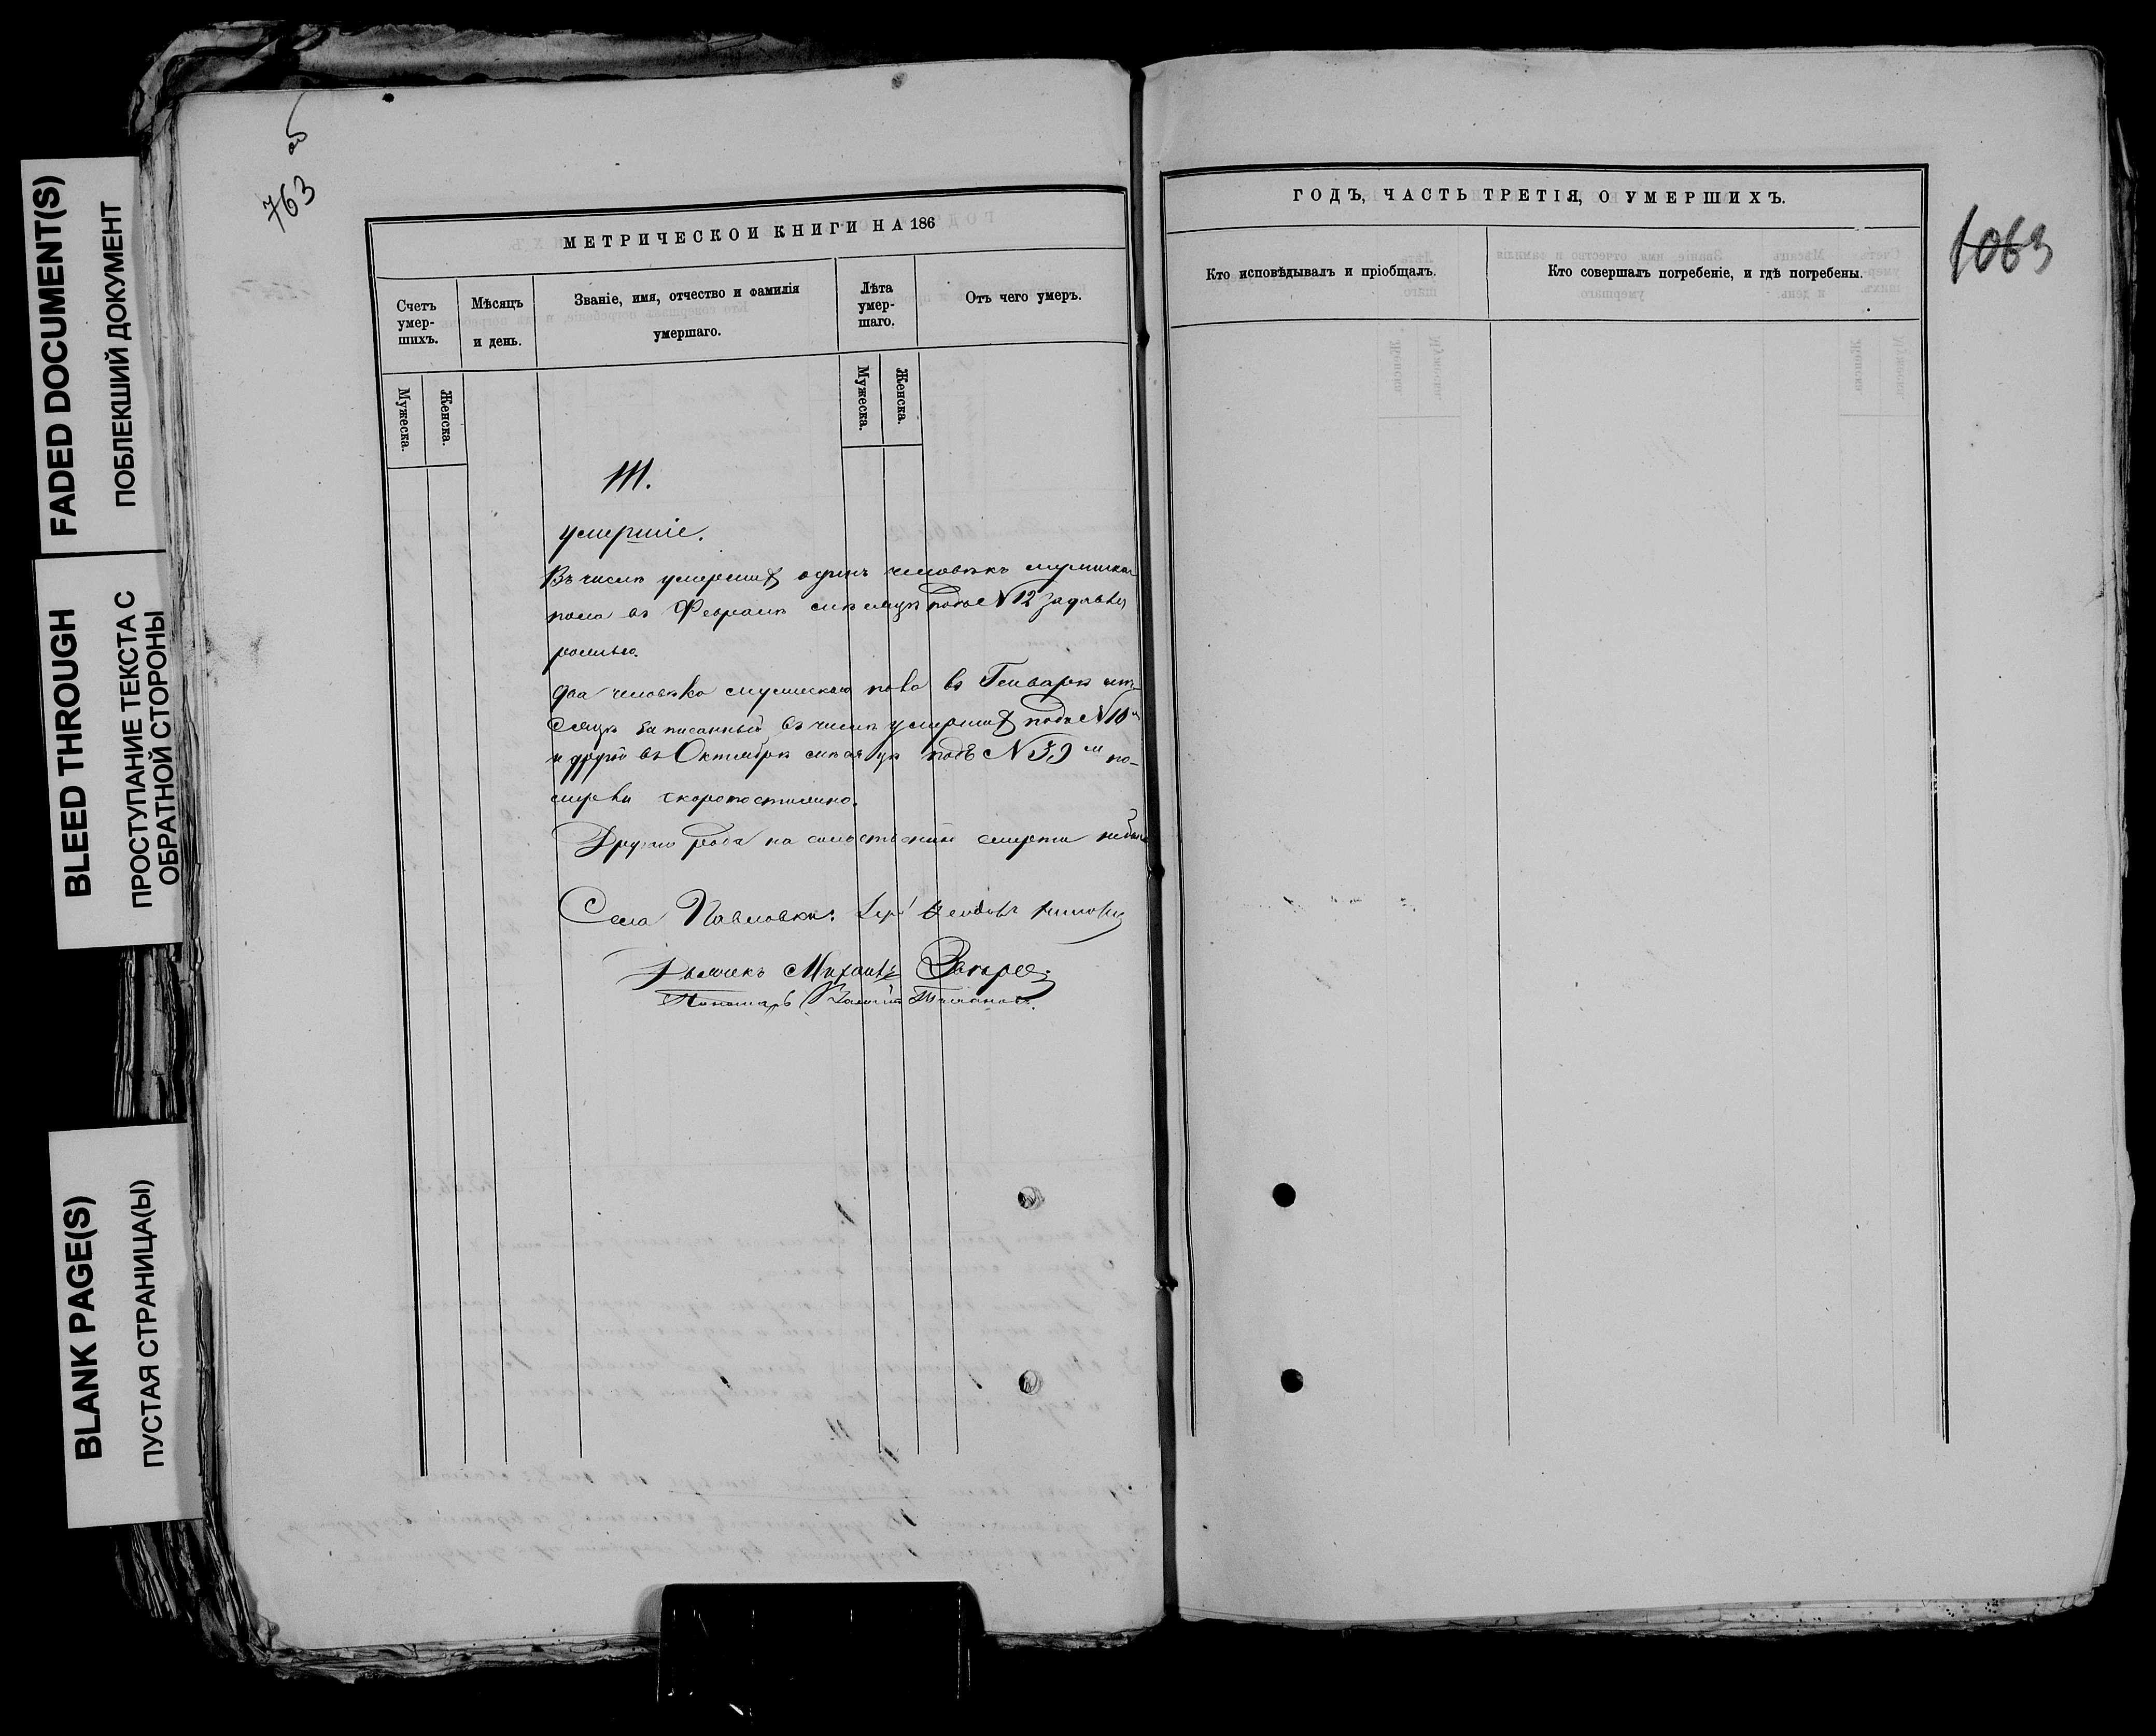 FADED DOCUMENT(S)
ПОБЛЕКШИЙ ДОКУМЕНТ
BLEED THROUGH
ПРОСТУПАНИЕ ТЕКСТА С
ОБРАТНОЙ СТОРОНЫ
BLANK PAGE(S)
ПУСТАЯ СТРАНИЦА(Ы)
763 об
МЕТРИЧЕСКОЙ КНИГИ НА 186
Счетъ
умер-
шихъ.
Мѣсяцъ
и день.
Званіе, имя, отчество и фамилія
умершаго.
Лѣта
умер-
шаго.
Отъ чего умеръ.
Мужеска.
Женска.
Мужеска.
Женска.
III.
умершіе.
Въ числѣ умершихъ одинъ человѣкъ мужескаго
пола въ Февралѣ мѣсяцѣ подъ №12
два человѣка мужескаго пола въ Генварѣ мѣ-
сяцѣ записанный въ числѣ умершихъ подъ №10
и другой въ Октябрѣ мѣсяцѣ подъ №39м по-
мерли скоропостижно.
Другаго рода смерти небыло
Села Павловки:
Дьячекъ Михаилъ
Пономарь
ГОДЪ, ЧАСТЬ ТРЕТІЯ, О УМЕРШИХЪ.
Кто исповѣдывалъ и пріобщалъ.
Кто совершалъ погребеніе, и гдѣ погребены.
1063